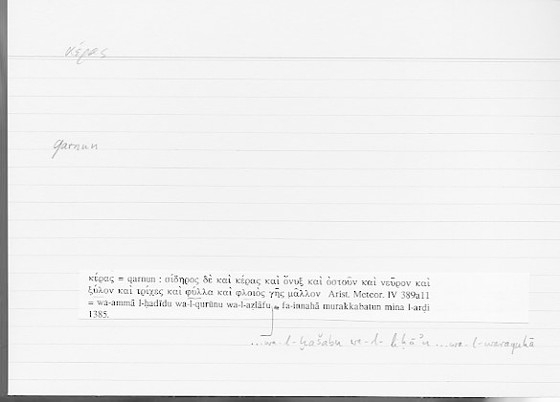 κέρας
qarnun
κέρας = qarnun : σίδηρος δὲ καὶ κέρας καὶ ὄνυξ καὶ ὀστοῦν καὶ νεῦρον καὶ
ξύλον καὶ τρίχες καὶ φύλλα καὶ φλοιὸς γῆς μᾶλλον Arist. Meteor. IV 389a11
= wa-ammā l-ḥadīdu wa-l-qurūnu wa-l-aẓlāfu = fa-innahā murakkabatun mina l-arḍi
1385.
...wa-l-ḫašabu wa-l- ... wa-l-waraqahā